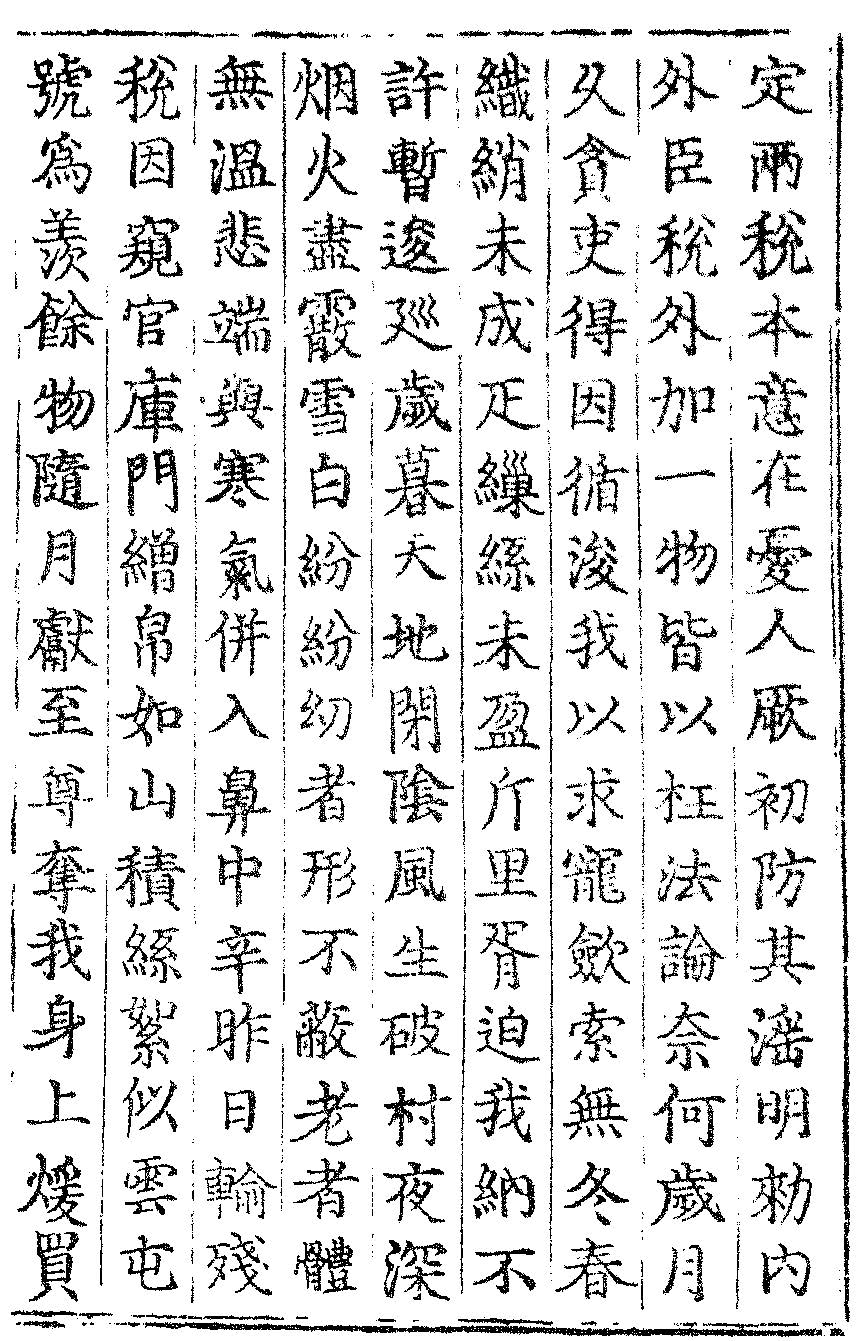 定兩稅本意在憂人厥初防其淫明勑內
外臣稅外加一物皆以枉法論奈何歲月
久貪吏得因循浚我以求寵歛索無冬春
織絹未成疋繰絲未盈斤里胥迫我納不
許暫逡廵歲暮天地閉陰風生破村夜深
烟火盡霰雪白紛紛幼者形不蔽老者體
無溫悲端與寒氣併入鼻中辛昨日輪殘
稅因窺官庫門繒帛如山積絲絮似雲屯
號爲羨餘物隨月獻至尊奪我身上煖買